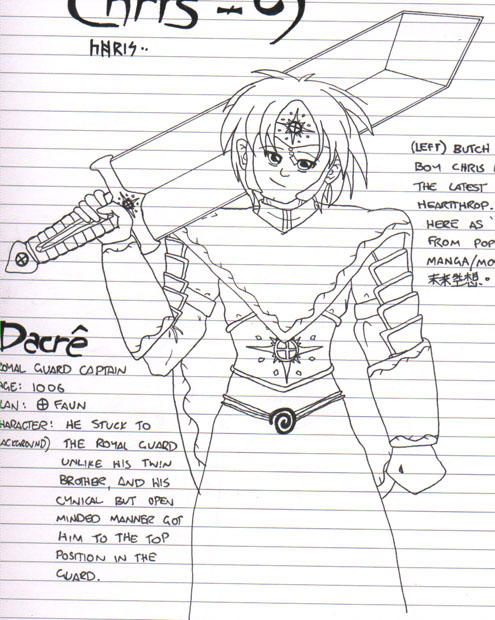 Chris -
(LEFT) BUTCH
BOY CHRIS
THE LATEST
HEARTTHROP.
HERE AS
FROM POP
MANGA/MO
Dacrê
OYAL GUARD CAPTAIN
AGE: 1006
LAN: ⊕ FAUN
HARACTER: HE STUCK TO
ACKGROUND) THE ROYAL GUARD
UNLIKE HIS TWIN
BROTHER, AND HIS
CYNICAL BUT OPEN
MINDED MANNER GOT
HIM TO THE TOP
POSITION IN THE
GUARD.